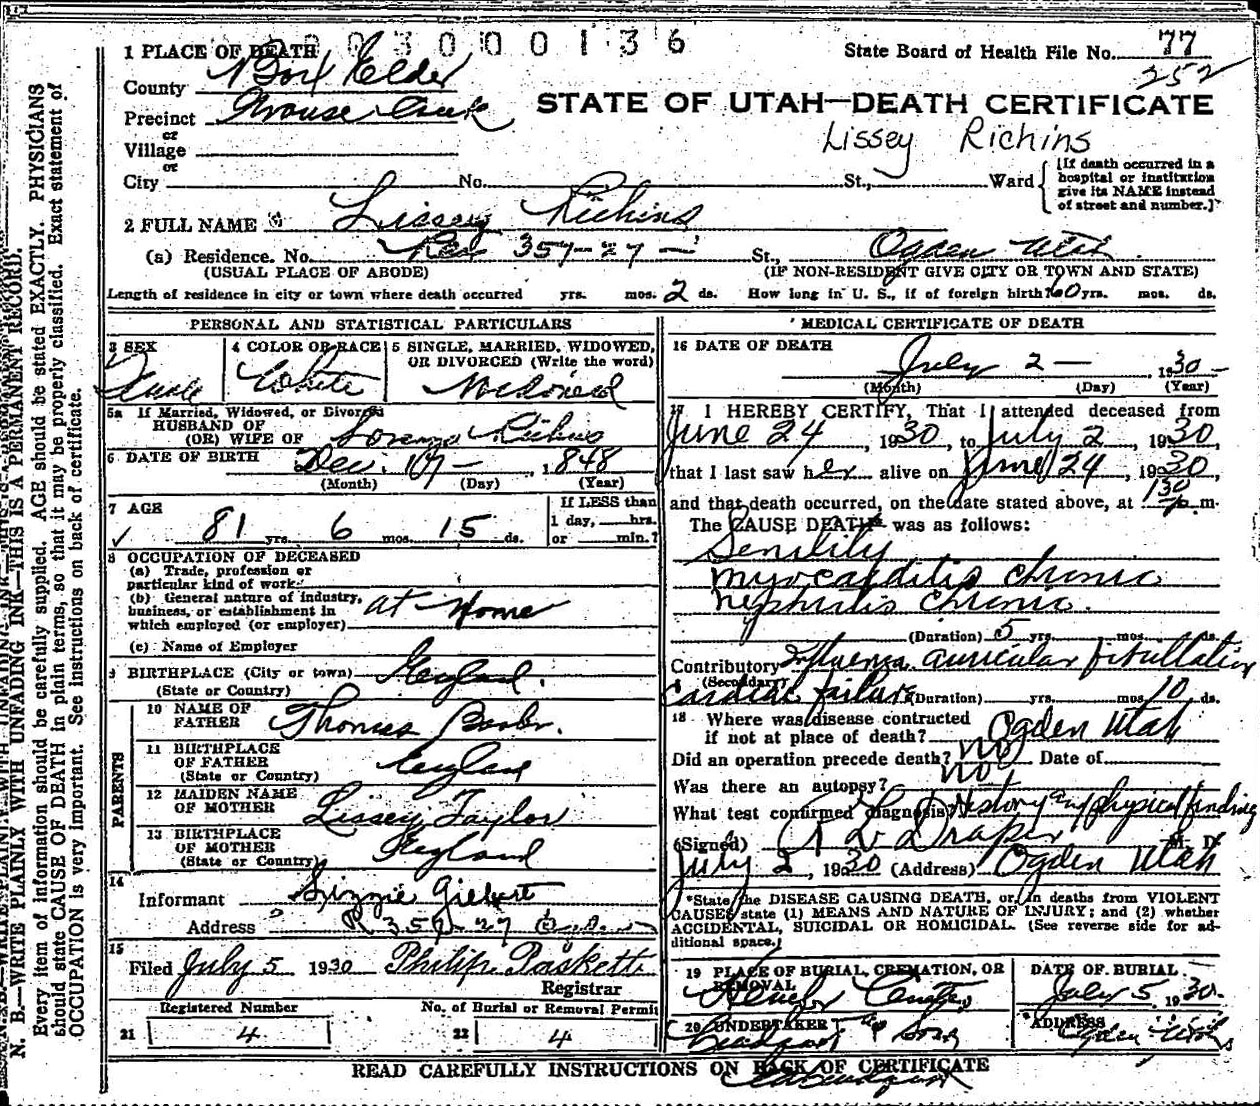 3 0 0 0 0 1 3 6
1 PLACE OF DEATH
State Board of Health File No. 77
252
County Box Elder
Precinct Grouse Creek
STATE OF UTAH—DEATH CERTIFICATE
or
Village
Lissey Richins
or
City No. St., Ward
[If death occurred in a
hospital or institution
give its NAME instead
of street and number.]
2 FULL NAME Lissey Richins
(a) Residence. No. Res 357-27- St., Ogden Utah
(USUAL PLACE OF ABODE) (IF NON-RESIDENT GIVE CITY OR TOWN AND STATE)
Length of residence in city or town where death occurred yrs. mos. 2 ds. How long in U. S., if of foreign birth? 60 yrs. mos. ds.
PERSONAL AND STATISTICAL PARTICULARS
3 SEX Female
4 COLOR OR RACE White
5 SINGLE, MARRIED, WIDOWED,
OR DIVORCED (Write the word)
5a If Married, Widowed, or Divorced
HUSBAND OF
(OR) WIFE OF Lorenzo Richins
6 DATE OF BIRTH Dec. 17 - 1848
(Month) (Day) (Year)
7 AGE
81 yrs. 6 mos. 15 ds.
If LESS than
1 day, hrs.
or min.?
8 OCCUPATION OF DECEASED
(a) Trade, profession or
particular kind of work
(b) General nature of industry,
business, or establishment in
which employed (or employer) at Home
(c) Name of Employer
9 BIRTHPLACE (City or town) England.
(State or Country)
PARENTS
10 NAME OF
FATHER Thomas
11 BIRTHPLACE
OF FATHER England
(State or Country)
12 MAIDEN NAME
OF MOTHER Lissey Taylor
13 BIRTHPLACE
OF MOTHER England
(State or Country)
14
Informant Lizzie Gilbert
Address R 357-27 Ogden
15
Filed July 5 1930 Philip Paskett
Registrar
Registered Number No. of Burial or Removal Permit
21 4 22 4
MEDICAL CERTIFICATE OF DEATH
16 DATE OF DEATH
July 2 - 1930
(Month) (Day) (Year)
17 I HEREBY CERTIFY, That I attended deceased from
June 24, 1930, to July 2, 1930,
that I last saw her alive on June 24, 1930
and that death occurred, on the date stated above, at 130 p. m.
The CAUSE DEATH* was as follows:
Senility
myocarditis chronic
nephritis chronic.
(Duration) 5 yrs. mos. ds.
Contributory Influenza auricular fibrillation
(Secondary)
cardiac failure (Duration) yrs. mos. 10 ds.
18 Where was disease contracted
if not at place of death? Ogden Utah
Did an operation precede death? no Date of
Was there an autopsy? no
What test confirmed diagnosis? History and physical finding
(Signed) Draper M. D.
July 2, 1930 (Address) Ogden Utah
*State the DISEASE CAUSING DEATH, or, in deaths from VIOLENT
CAUSES state (1) MEANS AND NATURE OF INJURY; and (2) whether
ACCIDENTAL, SUICIDAL OR HOMICIDAL. (See reverse side for ad-
ditional space.)
19 PLACE OF BURIAL, CREMATION, OR
REMOVAL
DATE OF BURIAL
July 5, 1930
20 UNDERTAKER & Sons
ADDRESS
Ogden Utah
READ CAREFULLY INSTRUCTIONS ON BACK OF CERTIFICATE
N. B.—WRITE PLAINLY WITH UNFADING INK—THIS IS A PERMANENT RECORD.
Every item of information should be carefully supplied. AGE should be stated EXACTLY. PHYSICIANS
should state CAUSE OF DEATH in plain terms, so that it may be properly classified. Exact statement of
OCCUPATION is very important. See instructions on back of certificate.